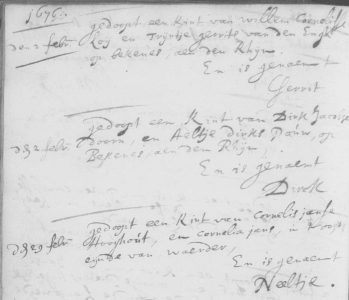 1676.
gedoopt een Kint van willem Cornelisse
den 2 febr. Los en Trijntje gerrits van den Engel
op bekenes, aen den Rhijn.
En is genaemt
Gerrit
gedoopt een Kint van Dirk Jacobse
den 2 febr. doorn, en Aeltje dirks Pauw, op
Bekenes, aen den Rhijn.
En is genaemt
Dirck
gedoopt een Kint van Cornelis janse
den 29 febr. Hooghout, en cornelia jans, in
eynde van waerder,
En is genaemt
Neeltje.